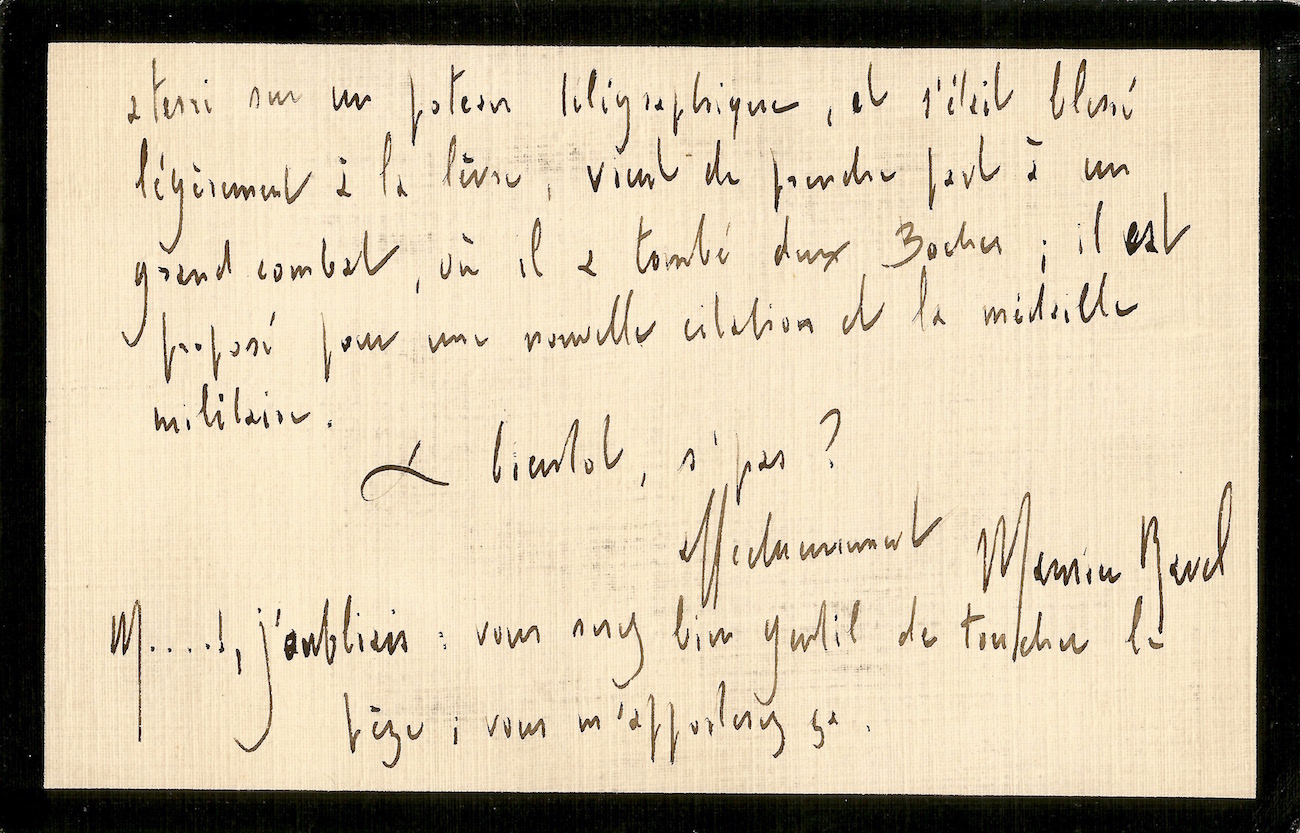 aterri sur un poteau télégraphique, et s'était blessé
légèrement à la lèvre, vient de prendre part à un
grand combat, où il a tombé deux Boches ; il est
proposé pour une nouvelle citation et la médaille
militaire.
A bientot, s'pas ?
affectueusement Maurice Ravel
M....!, j'oubliais : vous serez bien gentil de toucher le
pèze ; vous m'apporterez ça.